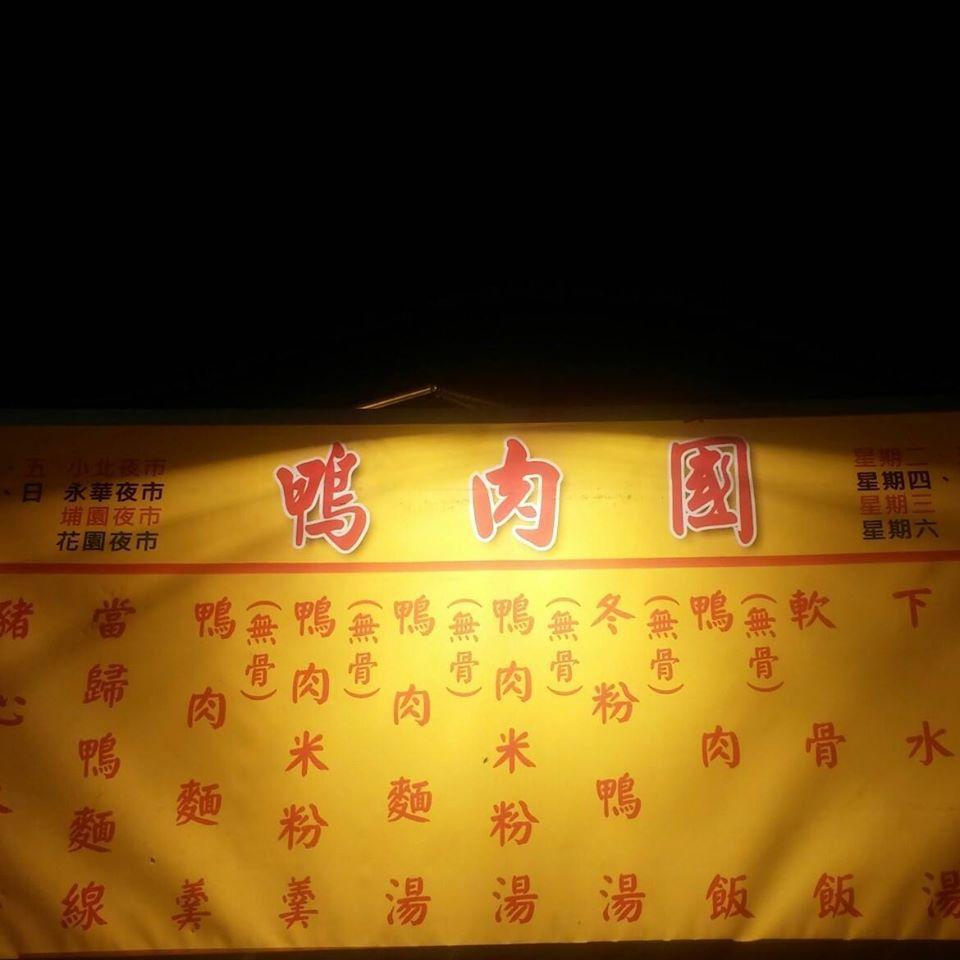 、五 小北夜市
、日 永華夜市
埔園夜市
花園夜市
鴨肉國
星期二、
星期四、
星期三
星期六
豬心
當歸鴨麵線
鴨肉麵羹
(無骨)
鴨肉米粉羹
(無骨)
鴨肉麵湯
(無骨)
鴨肉米粉湯
(無骨)
冬粉鴨湯
(無骨)
鴨肉飯
(無骨)
軟骨飯
下水湯